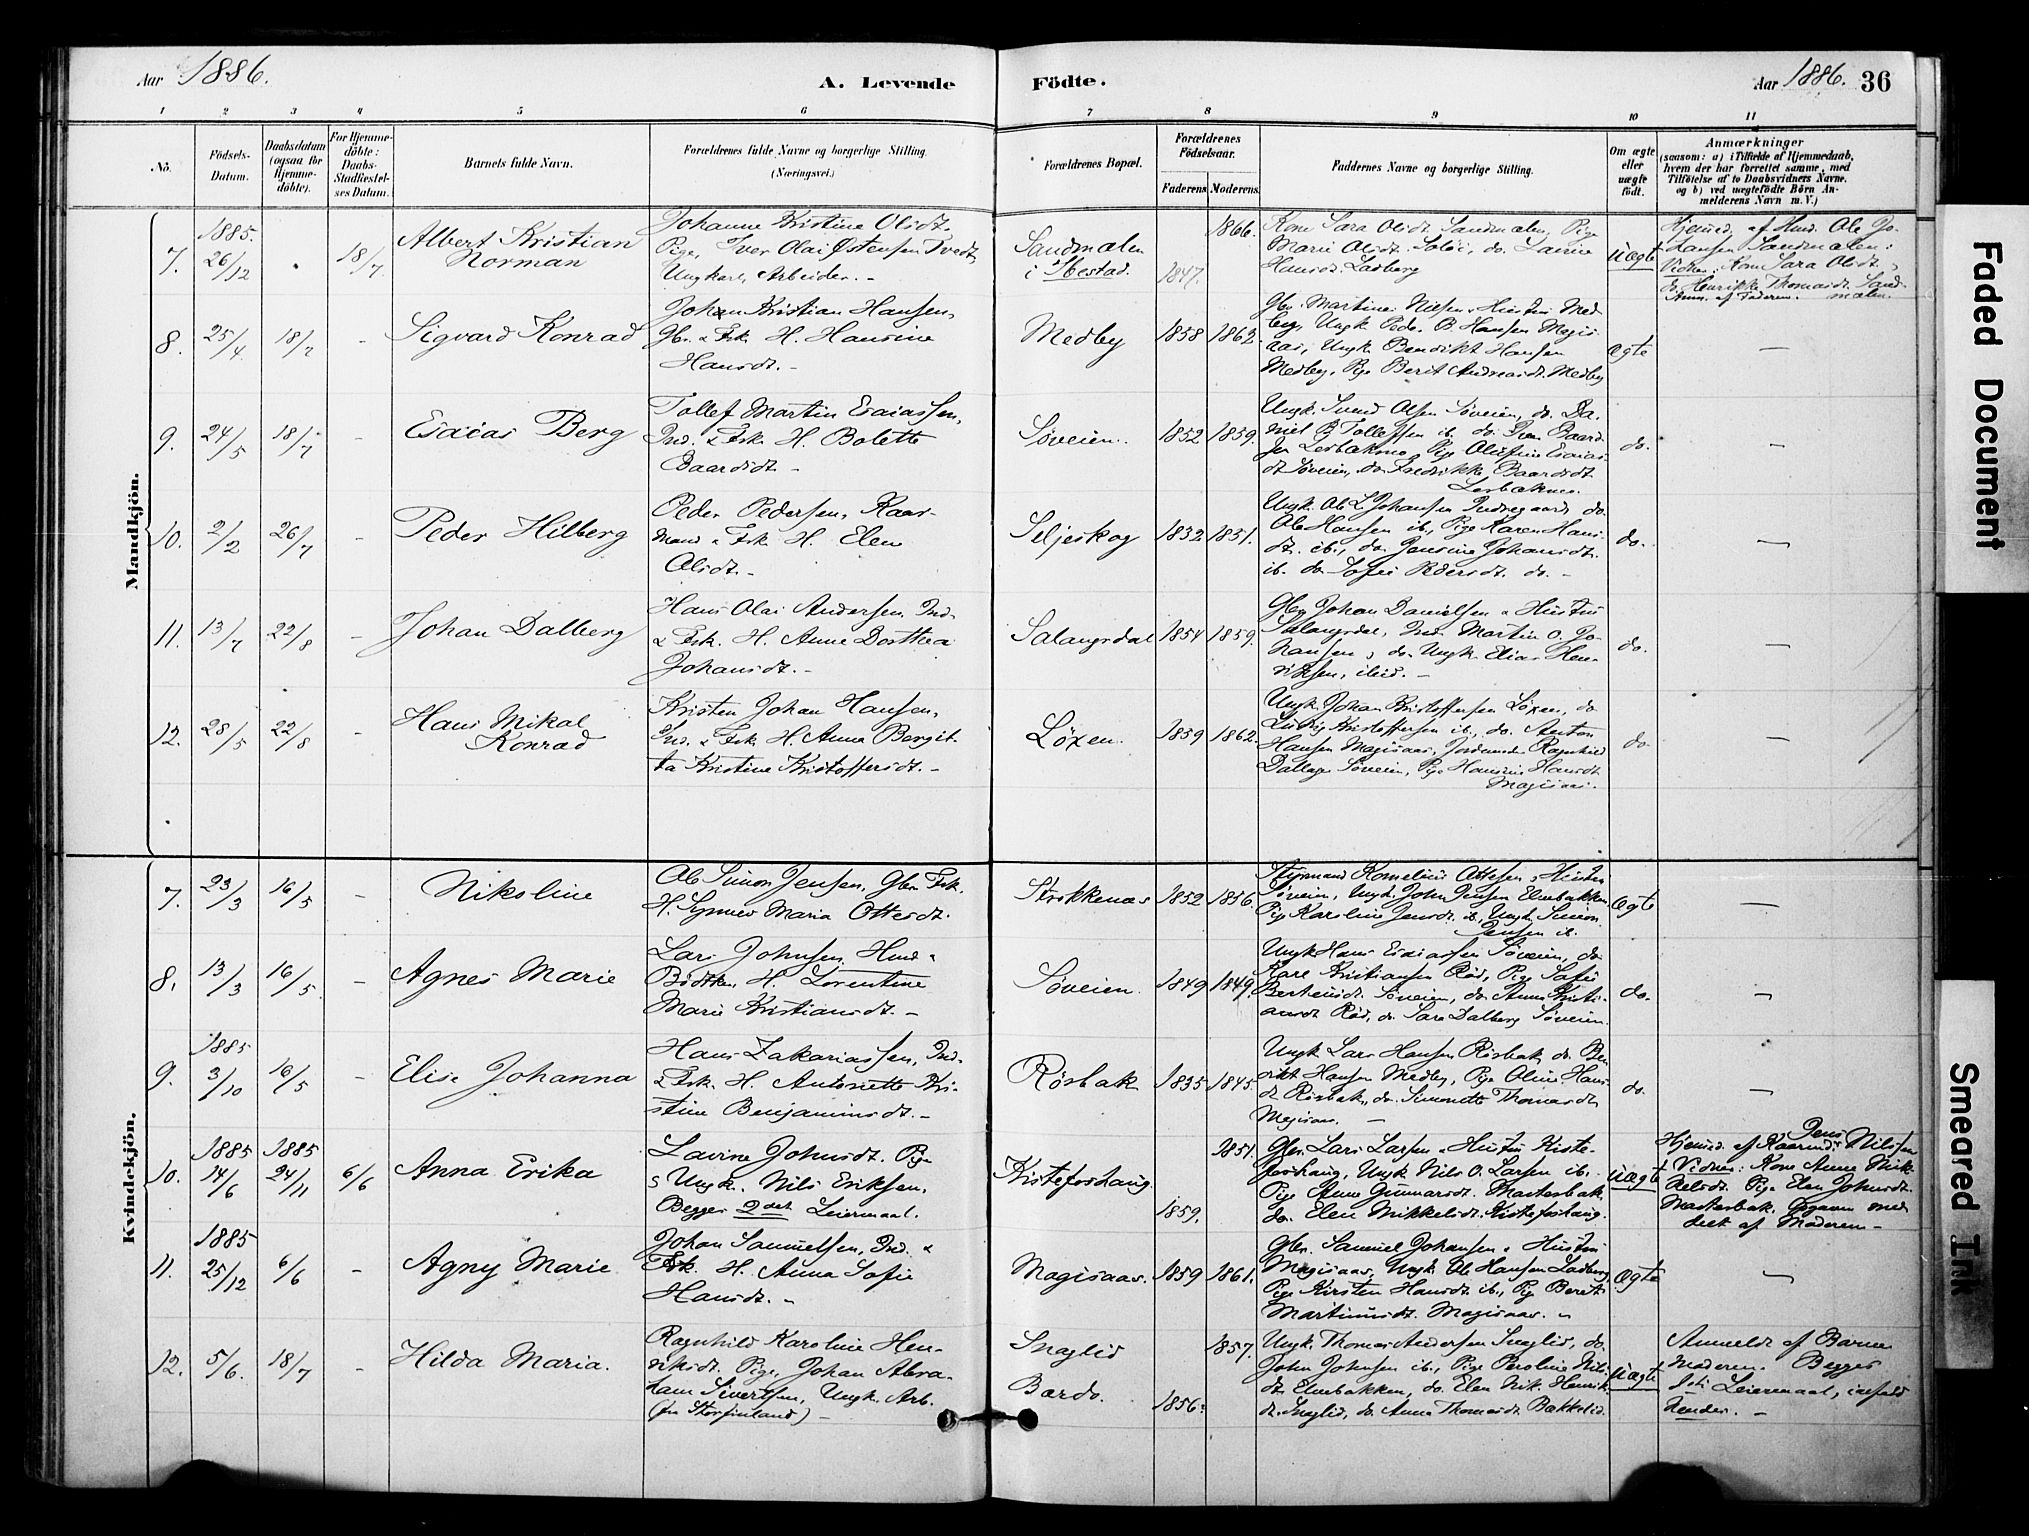 Aar 1886.
A. Levende Födte.
Aar 1886. 36
1 2 3 4 5 6 7 8 9 10 11
No.
Födsels-
Datum.
Daabsdatum
(ogsaa for
Hjemme-
döbte).
For Hjemme-
döbte:
Daabs-
Stadfestel-
ses Datum.
Barnets fulde Navn.
Forældrenes fulde Navne og borgerlige Stilling.
(Næringsvei.)
Forældrenes Bopæl.
Forældrenes
Födselsaar.
Faderens. Moderens.
Faddernes Navne og borgerlige Stilling.
Om ægte
eller
uægte
födt.
Anmærkninger
(saasom: a) i Tilfælde af Hjemmedaab,
hvem der har forrettet samme, med
Tilföielse af to Daabsvidners Navne,
og b) ved uægtefödte Börn An-
melderens Navn m. V.)
Mandkjön.
7.
1885.
26/12
18/7
Albert Kristian
Norman
Johanne Kristine Olsdt.
Pige, Iver Olai Østensen Tvedt,
Ungkarl, Arbeider. -
Sandmælen
i Ibestad.
1847.
1866.
Kone Sara Olsdt. Sandmælen, Pige
Marie Olsdt. do. Laurie
Hansdt. Ladberg
uægte
Hjemd. af Husm. Ole Jo-
hansen Sandmælen:
Vidner: Kone Sara Olsdt.,
do. Henrikke Thomasdt. Sand-
Anm. af Faderen. mælen.
8.
25/4
18/7
-
Sigvard Konrad
Johan Kristian Hansen,
Gbr. & Fsk. H. Hansine
Hansdt. -
Medby
1858
1862.
Gbr. Martines Nielsen & Hustru Med-
by, Ungk. Peder B. Hansen Magis-
aas, Ungk. Bendikt Hansen
Medby, Pige Berit Andreasdt. Medby
ægte
-
9.
24/5
18/7
-
Esaias Berg
Tollef Martin Esaiassen,
Ind. & Fsk. H. Bolette
Baardsdt -
Søveien.
1852
1859.
Ungk. Svend Olsen Søveien, do. Da-
niel B. Tollefsen ib. do. Iver Baard-
sen Lesbæknes, Pige Olufine Esaias-
dt. Søveien, do. Fredrikke Baardsdt.
Lesbæknes.
do.
-
10.
2/2
26/7
-
Peder Hilberg
Peder Pedersen, Kaar-
mand & Fsk. H. Elen
Olsdt. -
Seljeskog
1832
1851.
Ungk. Ole L. Johansen Indregaard, do.
Ole Hansen ib., Pige Karen Hans-
dt. ib., do. Jensine Johansdt.
ib. do. Sofie Pedersdt. do. -
do.
-
11.
13/7
22/8
-
Johan Dalberg
Hans Olai Andersen, Ind.
& Fsk. H. Anne Dorthea
Johansdt. -
Salangsdal
1854
1859.
Gbr. Johan Danielsen & Hustru
Salangsdal, Ind. Martin O. Jo-
hansen, do. Ungk. Elias Hen-
riksen, ibid. -
do.
-
12.
28/5
22/8
-
Hans Mikal
Konrad
Kristen Johan Hansen,
Ind. & Fsk. H. Anna Bergit-
ta Kristine Kristoffersdt. -
Løxen.
1859
1862.
Ungk. Johan Kristoffersen Løxen, do.
Ludvig Kristoffersen ib., do. Anton
Hansen Magisaas, Jordemdr. Ragnhild
Dallager Søveien, Pige Hansine Hansdt.
Magisaas.
do.
-
Kvindekjön.
7.
23/3
16/5
-
Nikoline
Ole Simon Jensen, Gbr. Fsk.
H. Synnev Maria Ottesdt.
Strokkenæs
1852
1856.
Styrmand Kornelius Ottesen & Hustru
Søveien, Ungk. John Jensen Elvebakken,
Pige Karoline Jensdt. ib., Ungk. Simon
Jensen ib.
ægte
-
8.
13/3
16/5.
-
Agnes Marie
Lars Johnsen, Husm. &
Bødker, H. Lorentine
Marie Kristiansdt. -
Søveien.
1849
1849.
Ungk. Hans Esaiassen Søveien, do.
Kare Kristiansen Rød, Pige Sofie
Berteusdt. Søveien, do. Anne Kristi-
ansdt. Rød, do. Sara Dalberg Søveien.
do.
-
9.
1885
3/10
16/5
-
Elise Johanna
Hans Zakariassen, Ind.
& Fsk. H. Antonette Kri-
stine Benjaminsdt. -
Rørbak
1835
1845.
Ungk. Lars Hansen Rørbak, do. Ben-
rikt Hansen Medby, Pige Oline Hans-
dt. Rørbak, do. Simonette Thomasdt.
Magisaas. -
do.
-
10.
1885
14/6
1885
24/11
6/6
Anna Erika
Lavine Johnsdt. Pige
& Ungk. Nils Eriksen.
Begges 2det Leiermaal.
Kisteforhaug.
1859.
1851.
Gbr. Lars Larsen & Hustru Kiste-
forhaug, Ungk. Nils O. Larsen ib.
Pige Anne Gunnarsdt. Masterbak,
do. Elen Mikkelsdt. Kisteforhaug.
uægte
Hjemd. af Kaarmd. Jens Nilsen
Vidner: Kone Anne Mik-
kelsdt. Pige Elen Johnsdt.
Masterbak. Opgaven med-
delt af Moderen -
11.
1885
25/12
6/6
-
Agny Marie
Johan Samuelsen, Ind. &
Fsk. H. Anna Sofie
Hansdt. -
Magisaas.
1859
1861.
Gbr. Samuel Johansen & Hustru
Magisaas, Ungk. Ole Hansen Ladberg,
Pige Kirsten Hansdt. ib., Pige Beret
Martinusdt. Magisaas. -
ægte
-
12.
5/6.
18/7
-
Hilda Maria.
Ragnhild Karoline Hen-
riksdt. Pige, Johan Abra-
ham Sivertsen, Ungk. Arb.
(fra Storfinland) -
Snøglid
Bardo.
1856.
1857.
Ungk. Thomas Andersen Snøglid, do.
John Johnsen ib., Pige Peroline Nils-
dt. Elvebakken, do. Elen Nik. Henrik-
dt. Snøglid, do. Anne Thomasdt. Bakkelid.
uægte
Anmeldt af Barnets
Moderen. Begges
1ste Leiermaal,
Faded Document
Smeared Ink